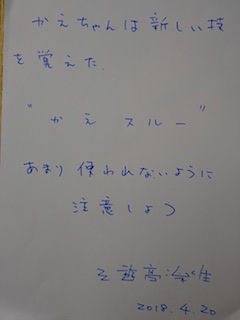 かえちゃんは新しい技
を覚えた.
"かえスルー"
あまり使われないように
注意しよう
2018.4.20